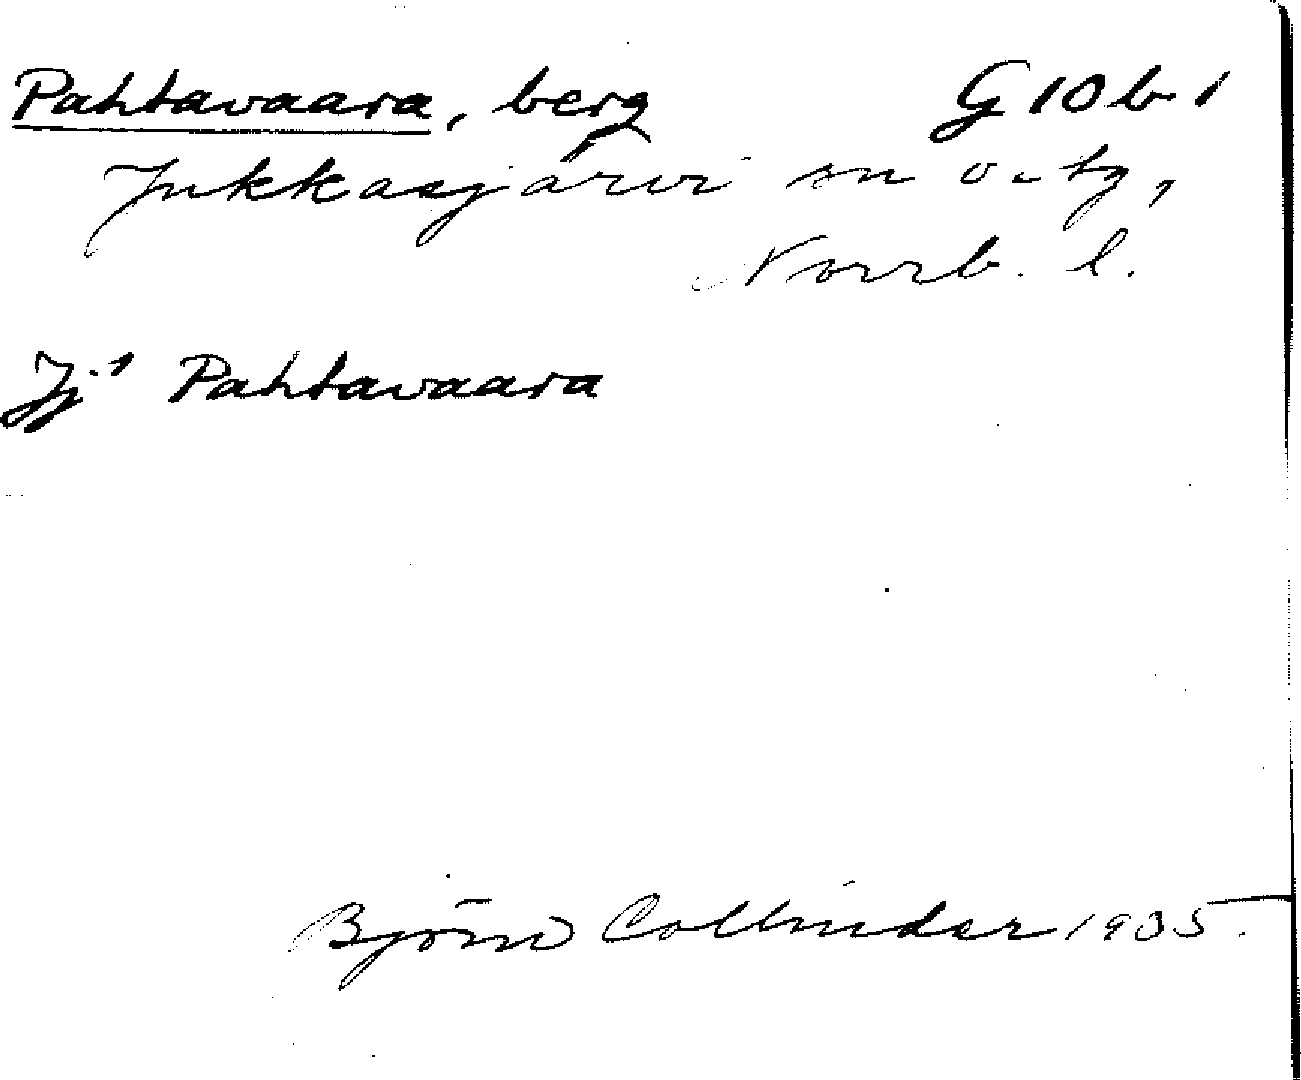 Pahtavaara, berg G 10 b 1
Jukkasjärvi sn o. tg,
Norrb. l.
Jj¹ Pahtavaara
Björn Collinder 1935.